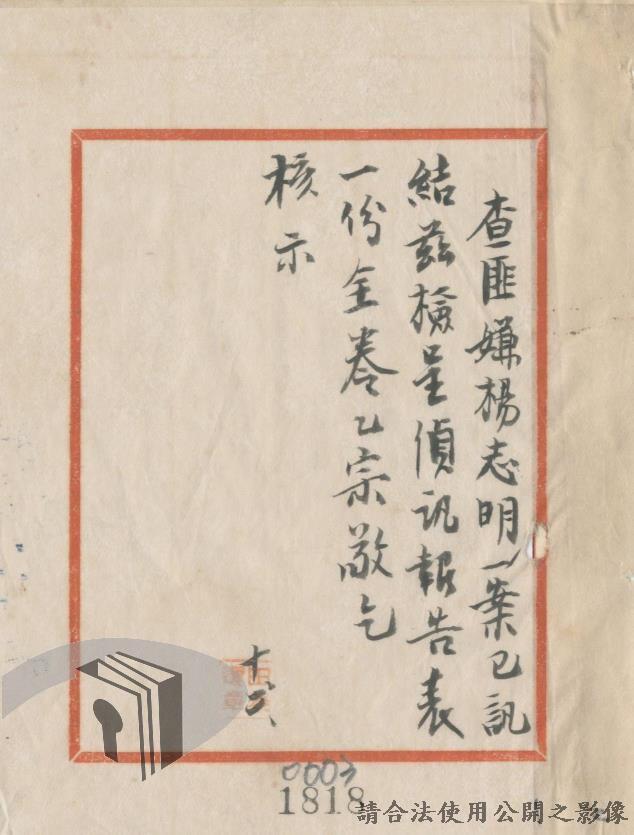 查匪嫌楊志明一案已訊
結茲檢呈偵訊報告表
一份全卷乙宗敬乞
核示
0003
1818
請合法使用公開之影像